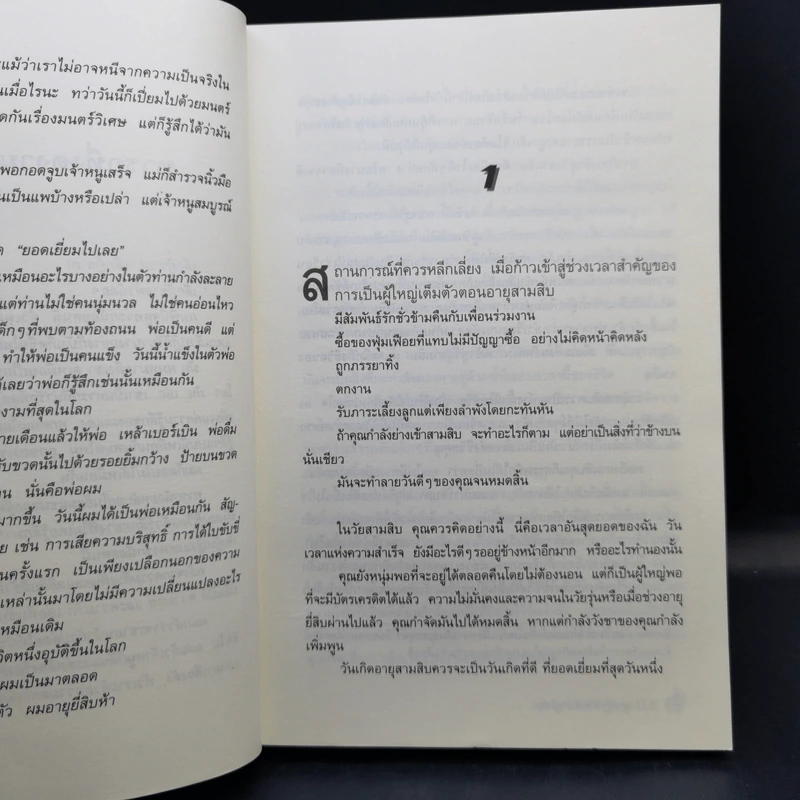 แม้ว่าเราไม่อาจหนีจากความเป็นจริงใน
เมื่อไรนะ ทว่าวันนี้ก็เปี่ยมไปด้วยมนตร์
กันเรื่องมนตร์วิเศษ แต่ก็รู้สึกได้ว่ามัน
พ่อกอดจูบเจ้าหนูเสร็จ แม่ก็สำรวจนิ้วมือ
เป็นแพบ้างหรือเปล่า แต่เจ้าหนูสมบูรณ์
“ยอดเยี่ยมไปเลย”
เหมือนอะไรบางอย่างในตัวท่านกำลังละลาย
แต่ท่านไม่ใช่คนนุ่มนวล ไม่ใช่คนอ่อนไหว
เด็กๆ ที่พบตามท้องถนน พ่อเป็นคนดี แต่
ทำให้พ่อเป็นคนแข็ง วันนี้น้ำแข็งในตัวพ่อ
เลยว่าพ่อก็รู้สึกเช่นนั้นเหมือนกัน
งามที่สุดในโลก
ายเดือนแล้วให้พ่อ เหล้าเบอร์เบิน พ่อดื่ม
รับขวดนั้นไปด้วยรอยยิ้มกว้าง ป้ายบนขวด
นั่นคือพ่อผม
มากขึ้น วันนี้ผมได้เป็นพ่อเหมือนกัน สัญ-
เช่น การเสียความบริสุทธิ์ การได้ใบขับขี่
นครั้งแรก เป็นเพียงเปลือกนอกของความ
เหล่านั้นมาโดยไม่มีความเปลี่ยนแปลงอะไร
เหมือนเดิม
วิตหนึ่งอุบัติขึ้นในโลก
ผมเป็นมาตลอด
ตัว ผมอายุยี่สิบห้า
1
สถานการณ์ที่ควรหลีกเลี่ยง เมื่อก้าวเข้าสู่ช่วงเวลาสำคัญของ
การเป็นผู้ใหญ่เต็มตัวตอนอายุสามสิบ
มีสัมพันธ์รักชั่วข้ามคืนกับเพื่อนร่วมงาน
ซื้อของฟุ่มเฟือยที่แทบไม่มีปัญญาซื้อ อย่างไม่คิดหน้าคิดหลัง
ถูกภรรยาทิ้ง
ตกงาน
รับภาระเลี้ยงลูกแต่เพียงลำพังโดยกะทันหัน
ถ้าคุณกำลังย่างเข้าสามสิบ จะทำอะไรก็ตาม แต่อย่าเป็นสิ่งที่ว่าข้างบน
นั่นเชียว
มันจะทำลายวันดีๆ ของคุณจนหมดสิ้น
ในวัยสามสิบ คุณควรคิดอย่างนี้ นี่คือเวลาอันสุดยอดของฉัน วัน
เวลาแห่งความสำเร็จ ยังมีอะไรดีๆ รออยู่ข้างหน้าอีกมาก หรืออะไรทำนองนั้น
คุณยังหนุ่มพอที่จะอยู่ได้ตลอดคืนโดยไม่ต้องนอน แต่ก็เป็นผู้ใหญ่พอ
ที่จะมีบัตรเครดิตได้แล้ว ความไม่มั่นคงและความจนในวัยรุ่นหรือเมื่อช่วงอายุ
ยี่สิบผ่านไปแล้ว คุณกำจัดมันไปได้หมดสิ้น หากแต่กำลังวังชาของคุณกำลัง
เพิ่มพูน
วันเกิดอายุสามสิบควรจะเป็นวันเกิดที่ดี ที่ยอดเยี่ยมที่สุดวันหนึ่ง